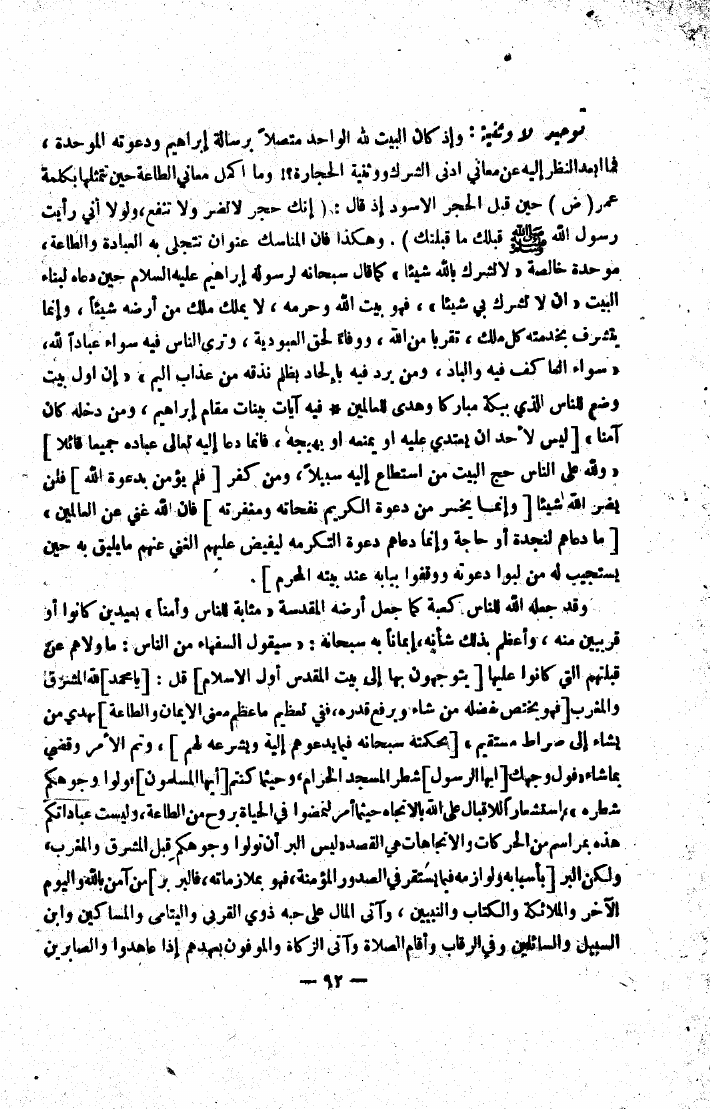 توحيد لا وثنية : وإذ كان البيت لله الواحد متصلاً برسالة إبراهيم ودعوته الموحدة ،
فما ابعد النظر إليه عن معاني ادنى الشرك ووثنية الحجارة؟! وما اكمل معاني الطاعة حين تمثلها بكلمة
عمر( ض ) حين قبل الحجر الاسود إذ قال : ( إنك حجر لاتضر ولا تنفع، ولولا أني رأيت
رسول الله ﷺ قبلك ما قبلتك ) . وهكذا فان المناسك عنوان تتجلى به العبادة والطاعة،
موحدة خالصة « لاتشرك بالله شيئا » كما قال سبحانه لرسوله إبراهيم عليه السلام حين دعاه لبناء
البيت « ان لا تشرك بي شيئا » ، فهو بيت الله وحرمه ، لا يملك ملك من أرضه شيئاً ، وإنما
يتشرف بخدمته كل ملك ، تقربا من الله ، ووفاء لحق العبودية ، وترى الناس فيه سواء عباداً لله،
« سواء العاكف فيه والباد ، ومن يرد فيه بإلحاد بظلم نذقه من عذاب اليم » « إن اول بيت
وضع للناس الذي ببكة مباركا وهدى للعالمين * فيه آيات بينات مقام إبراهيم ، ومن دخله كان
آمنا » [ ليس لأحد ان يعتدي عليه او يمنعه او يهيجه ، فانما دعا إليه تعالى عباده جميعا قائلا ]
« ولله على الناس حج البيت من استطاع إليه سبيلاً ، ومن كفر [ فلم يؤمن بدعوة الله ] فلن
يضر الله شيئا [ وإنما يخسر من دعوة الكريم نفحاته ومغفرته ] فان الله غني عن العالمين »
[ ما دعاهم لنجدة أو حاجة وإنما دعاهم دعوة التكرمه ليفيض عليهم الغني عنهم مايليق به حين
يستجيب له من لبوا دعوته ووقفوا ببابه عند بيته المحرم ] .
وقد جعله الله للناس كعبة كما جعل أرضه المقدسة « مثابة للناس وأمناً » بعيدين كانوا أو
قريبين منه ، وأعظم بذلك شأنه، إيماناً به سبحانه : « سيقول السفهاء من الناس : ما ولاهم عن
قبلتهم التي كانوا عليها [ يتوجهون بها إلى بيت المقدس أول الاسلام] قل : [يا محمد] لله المشرق
والمغرب [فهو يختص بفضله من شاء ويرفع قدره، ففي تعظيم ما عظم معنى الايمان والطاعة] يهدي من
يشاء إلى صراط مستقيم » [بحكمته سبحانه فيما يدعوهم إلية ويشرعه لهم ] ، وتم الأمر وقضي
بما شاء «فول وجهك [ايها الرسول] شطر المسجد الحرام، وحيثما كنتم [أيها المسلمون] فولوا وجوهكم
شطره »، إستشعاراً للاقبال على الله بالاتجاه حيثما أمر لتمضوا في الحياة بروح من الطاعة، وليست عباداتكم
هذه بمراسم من الحركات والاتجاهات هي القصد «ليس البر أن تولوا وجوهكم قبل المشرق والمغرب،
ولكن البر [بأسبابه ولوازمه فيما يستقر في الصدور المؤمنة، فهو بملازماته، فالبر بر] من آمن بالله واليوم
الآخر والملائكة والكتاب والنبيين ، وآتى المال على حبه ذوي القربى واليتامى والمساكين وابن
السبيل والسائلين وفي الرقاب وأقام الصلاة وآتى الزكاة والموفون بعهدهم إذا عاهدوا والصابرين
— ٩٢ —